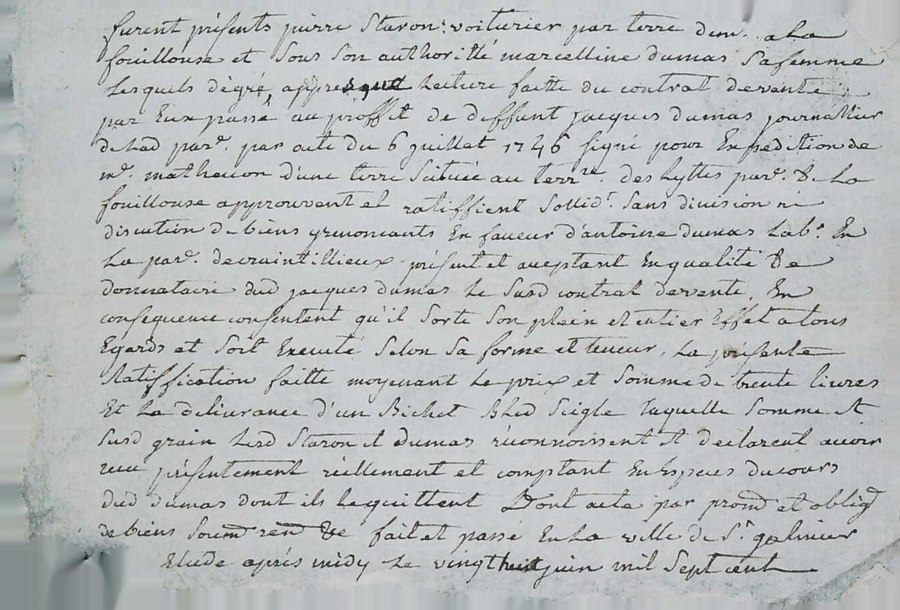 furent présents pierre Staron voiturier par terre dem. a La
fouillouse et Sous Son authoritté marcelline dumas Safemme
Lesquels dégré, appres que Lecture faitte du contrat devente
par Eux passé au proffit de deffunt jacques dumas journallier
de Lad par. par acte du 6 juillet 1746 signé pour Expedition de
mr. matheucon d'une terre Scituée au terr.re des hyttes par. de La
fouillouse approuvent et ratiffient Sollid.t Sans division ni
discution de biens yrenoncants En faveur d'antoine dumas Lab.r En
La par. decraintillieux présent et aceptant En qualité de
donnataire dud jacques dumas Le Susd contrat devente, En
consequence consentent qu'il Sorte Son plein et entier Effet a tous
Egards et Soit Executé Selon Sa forme et teneur, La présente
Ratiffication faitte moyenant Le prix et Somme de trente livres
Et La delivrance d'un Bichet Bled Seigle Laquelle Somme et
Susd grain Lesd Staron et dumas reconnoissent et declarent avoir
receu présentement réellement et comptant En Especes ducours
dud dumas dont ils Lequittent Dont acte par prom et oblig
de biens Soum ren &c fait et passé En La ville de St galmier
Etude aprés midy Le vingthuit juin mil Sept cent